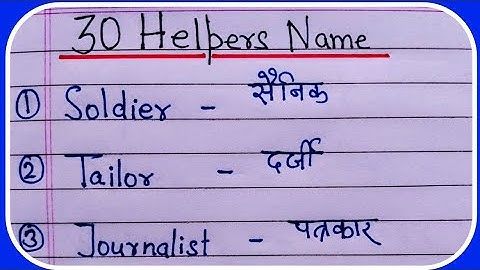 30 Helpers Name
① Soldier - सैनिक
② Tailor - दर्जी
③ Journalist - पत्रकार